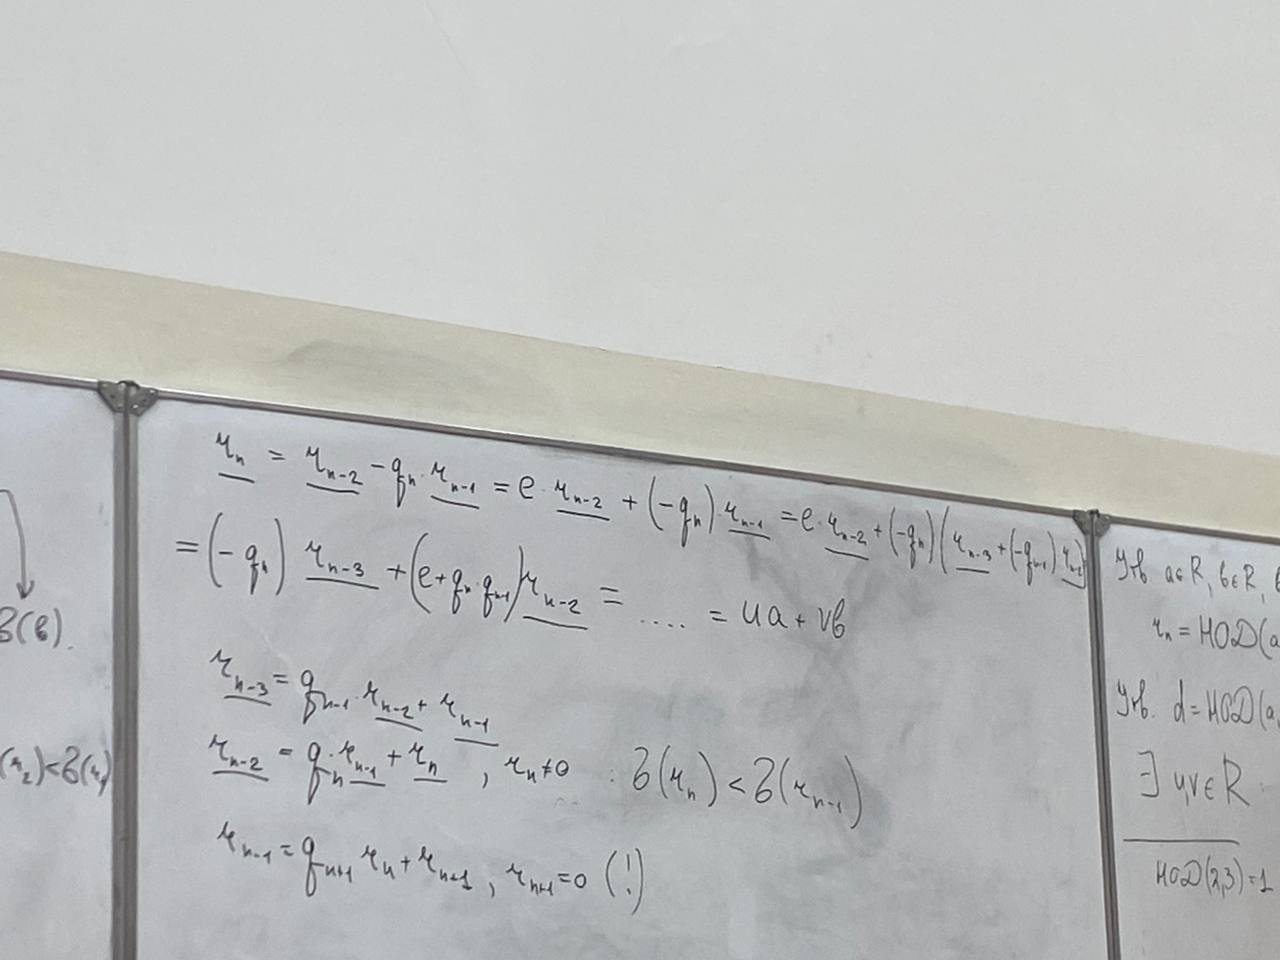 б(b).
(r₂)<б(r₁)
r_n = r_{n-2} - q_n · r_{n-1} = e · r_{n-2} + (-q_n) · r_{n-1} = e · r_{n-2} + (-q_n)(r_{n-3} + (-q_{n-1}) r_{n-2})
= (-q_n) r_{n-3} + (e + q_n · q_{n-1}) r_{n-2} = .... = ua + vb
r_{n-3} = q_{n-1} · r_{n-2} + r_{n-1}
r_{n-2} = q_n · r_{n-1} + r_n , r_n ≠ 0 : б(r_n) < б(r_{n-1})
r_{n-1} = q_{n+1} r_n + r_{n+1} , r_{n+1} = 0 (!)
Утв a∈R, b∈R,
r_n = НОД(a
Утв. d = НОД(a,
∃ u,v∈R
НОД(2,3)=1